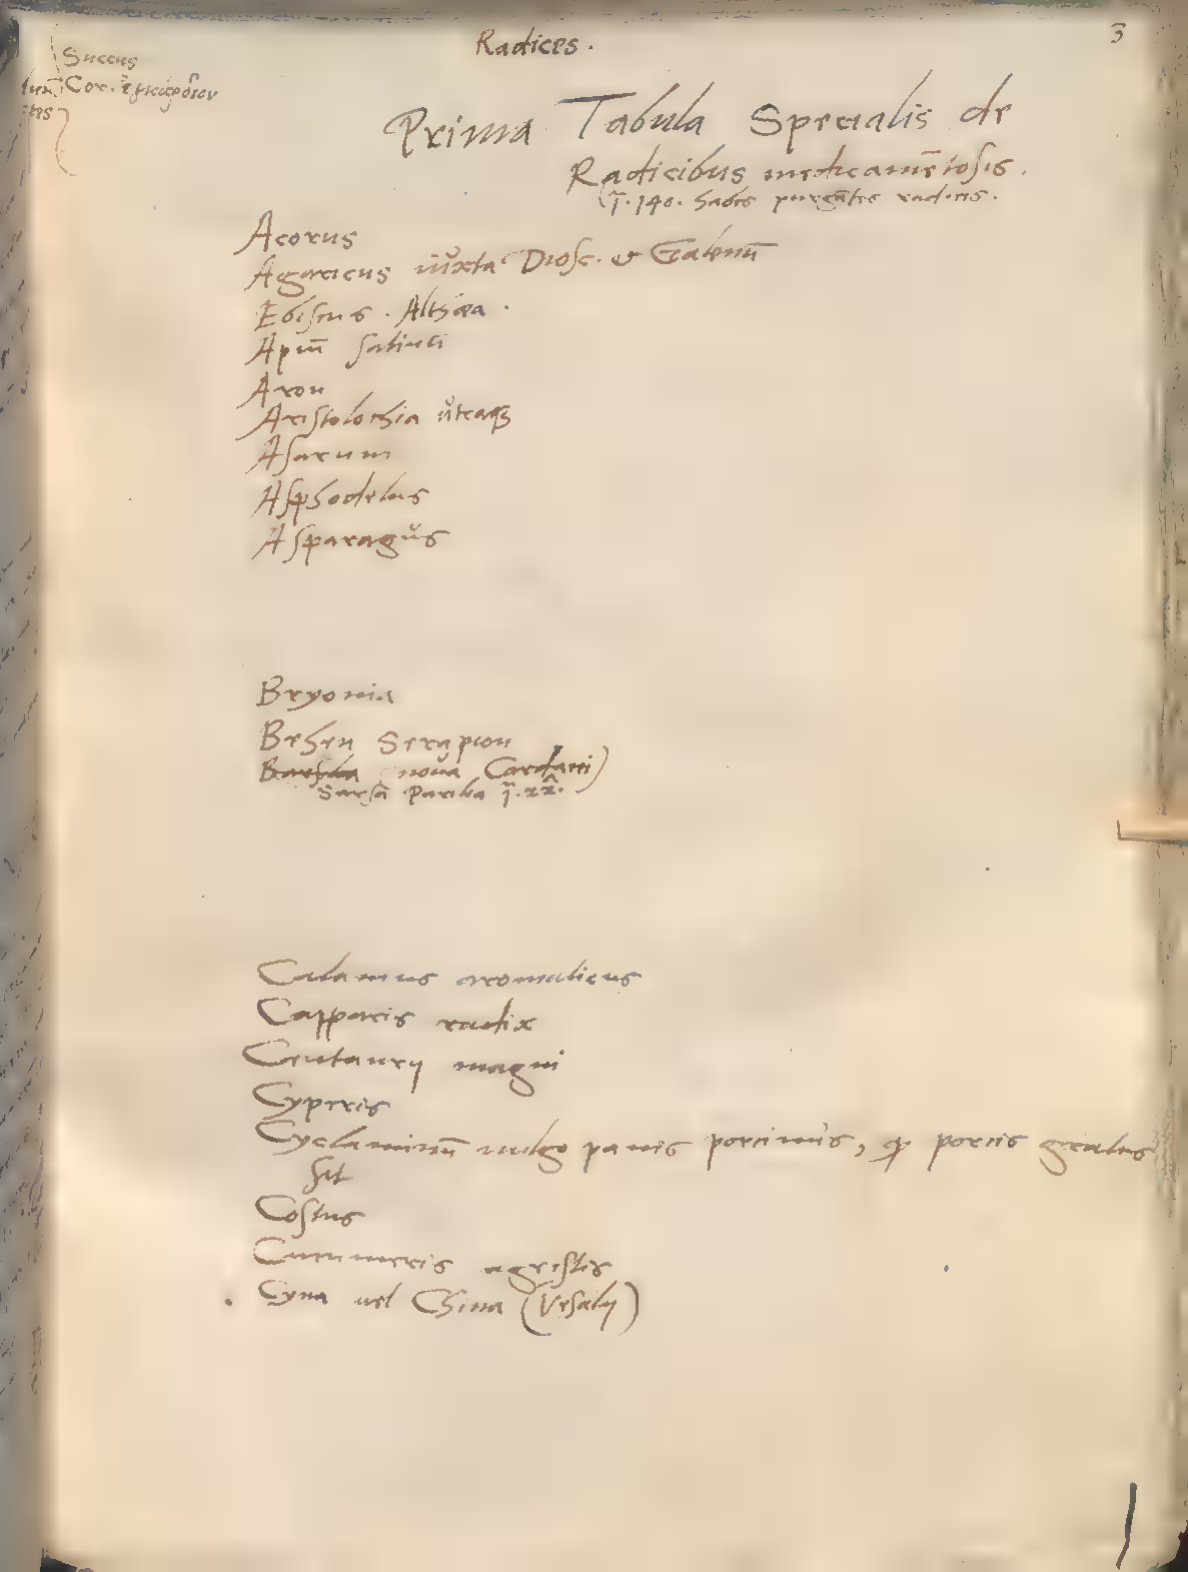 Radices.
3
Succus
Cor.
Prima Tabula Specialis de
Radicibus medicamẽtosis.
j̃. 140. habes purgãtes radices.
Acorus
Agaricus iuxta Diosc. & Galenũ
Ebiscus. Althæa.
Apiũ satiuci
Aron
Aristolochia utraq3
Asarum
Asphodelus
Asparagus
Bryonia
Behen Serapion
noua Cardani)
Sarsa Parilla j̃. 22.
Calamus aromaticus
Capparis radix
Centaurij magni
Cyperis
Cyclaminũ uulgo panis porcinus, porcis gratus
sit
Costus
Cucumeris agrestis
Cyna uel China (Vesalij)